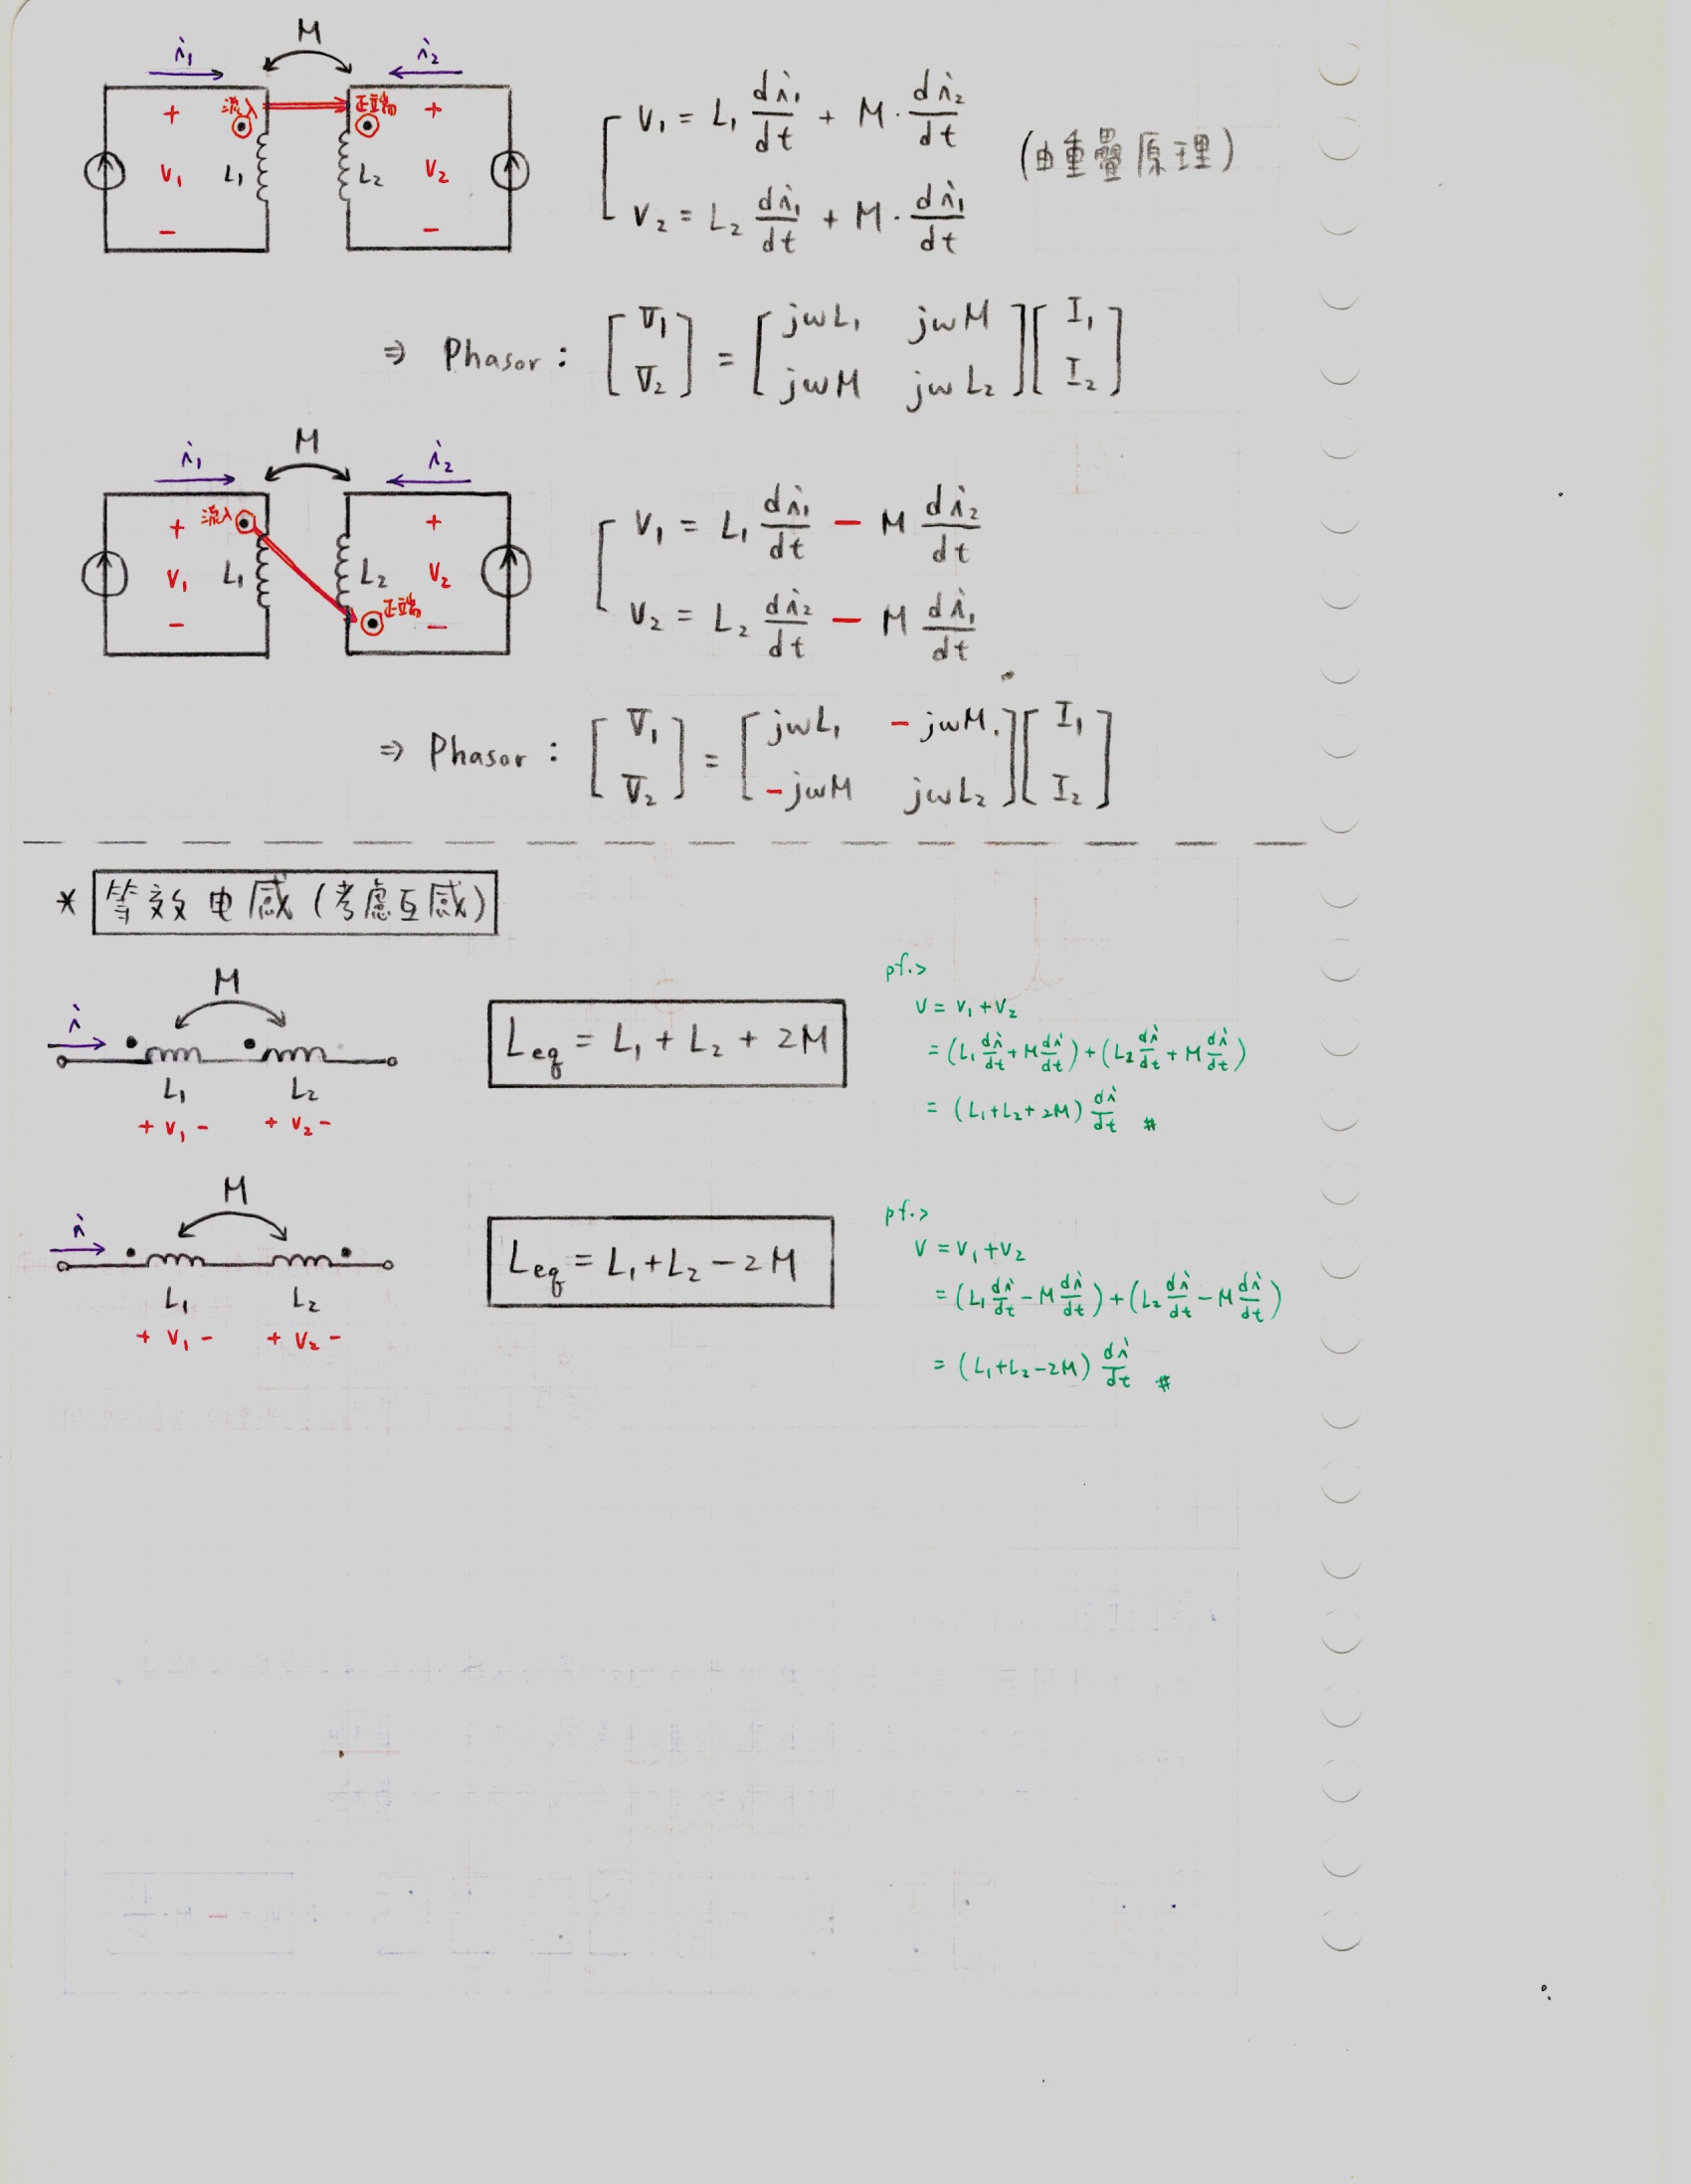 M
i₁ i₂
+ 流入 正端 +
V₁ L₁ L₂ V₂
- -
V₁ = L₁ di₁/dt + M · di₂/dt
(由重疊原理)
V₂ = L₂ di₁/dt + M · di₁/dt
⇒ Phasor : [V₁ V₂] = [jωL₁ jωM jωM jωL₂] [I₁ I₂]
M
i₁ i₂
+ 流入 +
V₁ L₁ L₂ V₂
- 正端 -
V₁ = L₁ di₁/dt - M di₂/dt
V₂ = L₂ di₂/dt - M di₁/dt
⇒ Phasor : [V₁ V₂] = [jωL₁ -jωM -jωM jωL₂] [I₁ I₂]
* 等效电感(考慮互感)
M
i
L₁ L₂
+ V₁ - + V₂ -
Leq = L₁ + L₂ + 2M
pf.>
V = V₁ + V₂
= (L₁ di/dt + M di/dt) + (L₂ di/dt + M di/dt)
= (L₁+L₂+2M) di/dt #
M
i
L₁ L₂
+ V₁ - + V₂ -
Leq = L₁+L₂-2M
pf.>
V = V₁ + V₂
= (L₁ di/dt - M di/dt) + (L₂ di/dt - M di/dt)
= (L₁+L₂-2M) di/dt #